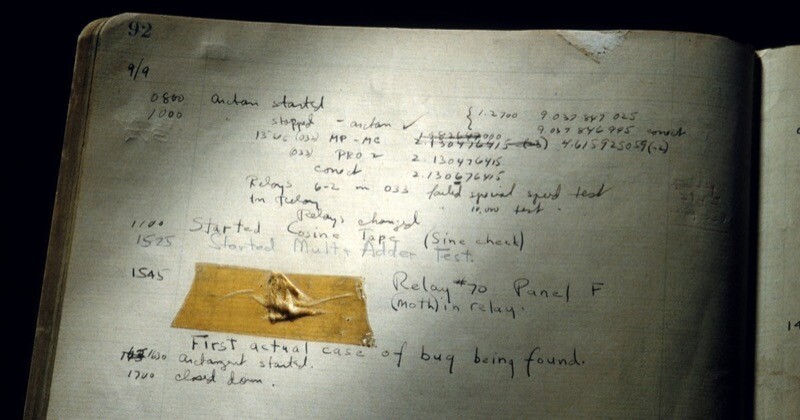 92
9/9
0800 arctan started
1000 " stopped - arctan ✓ { 1.2700 9.037 847 025
9.037 846 995 correct
13"00 (032) MP - MC 2.130476415 (-3) 4.615925059 (-2)
(033) PRO 2 2.130476415
correct 2.130676415
Relays 6-2 in 033 failed special speed test
In Relay " 10,000 test "
Relays changed
1100 Started Cosine Tape (Sine check)
1525 Started Mult + Adder Test.
1545 Relay #70 Panel F
(moth) in relay.
First actual case of bug being found.
1600 arctangent started.
1700 closed down.